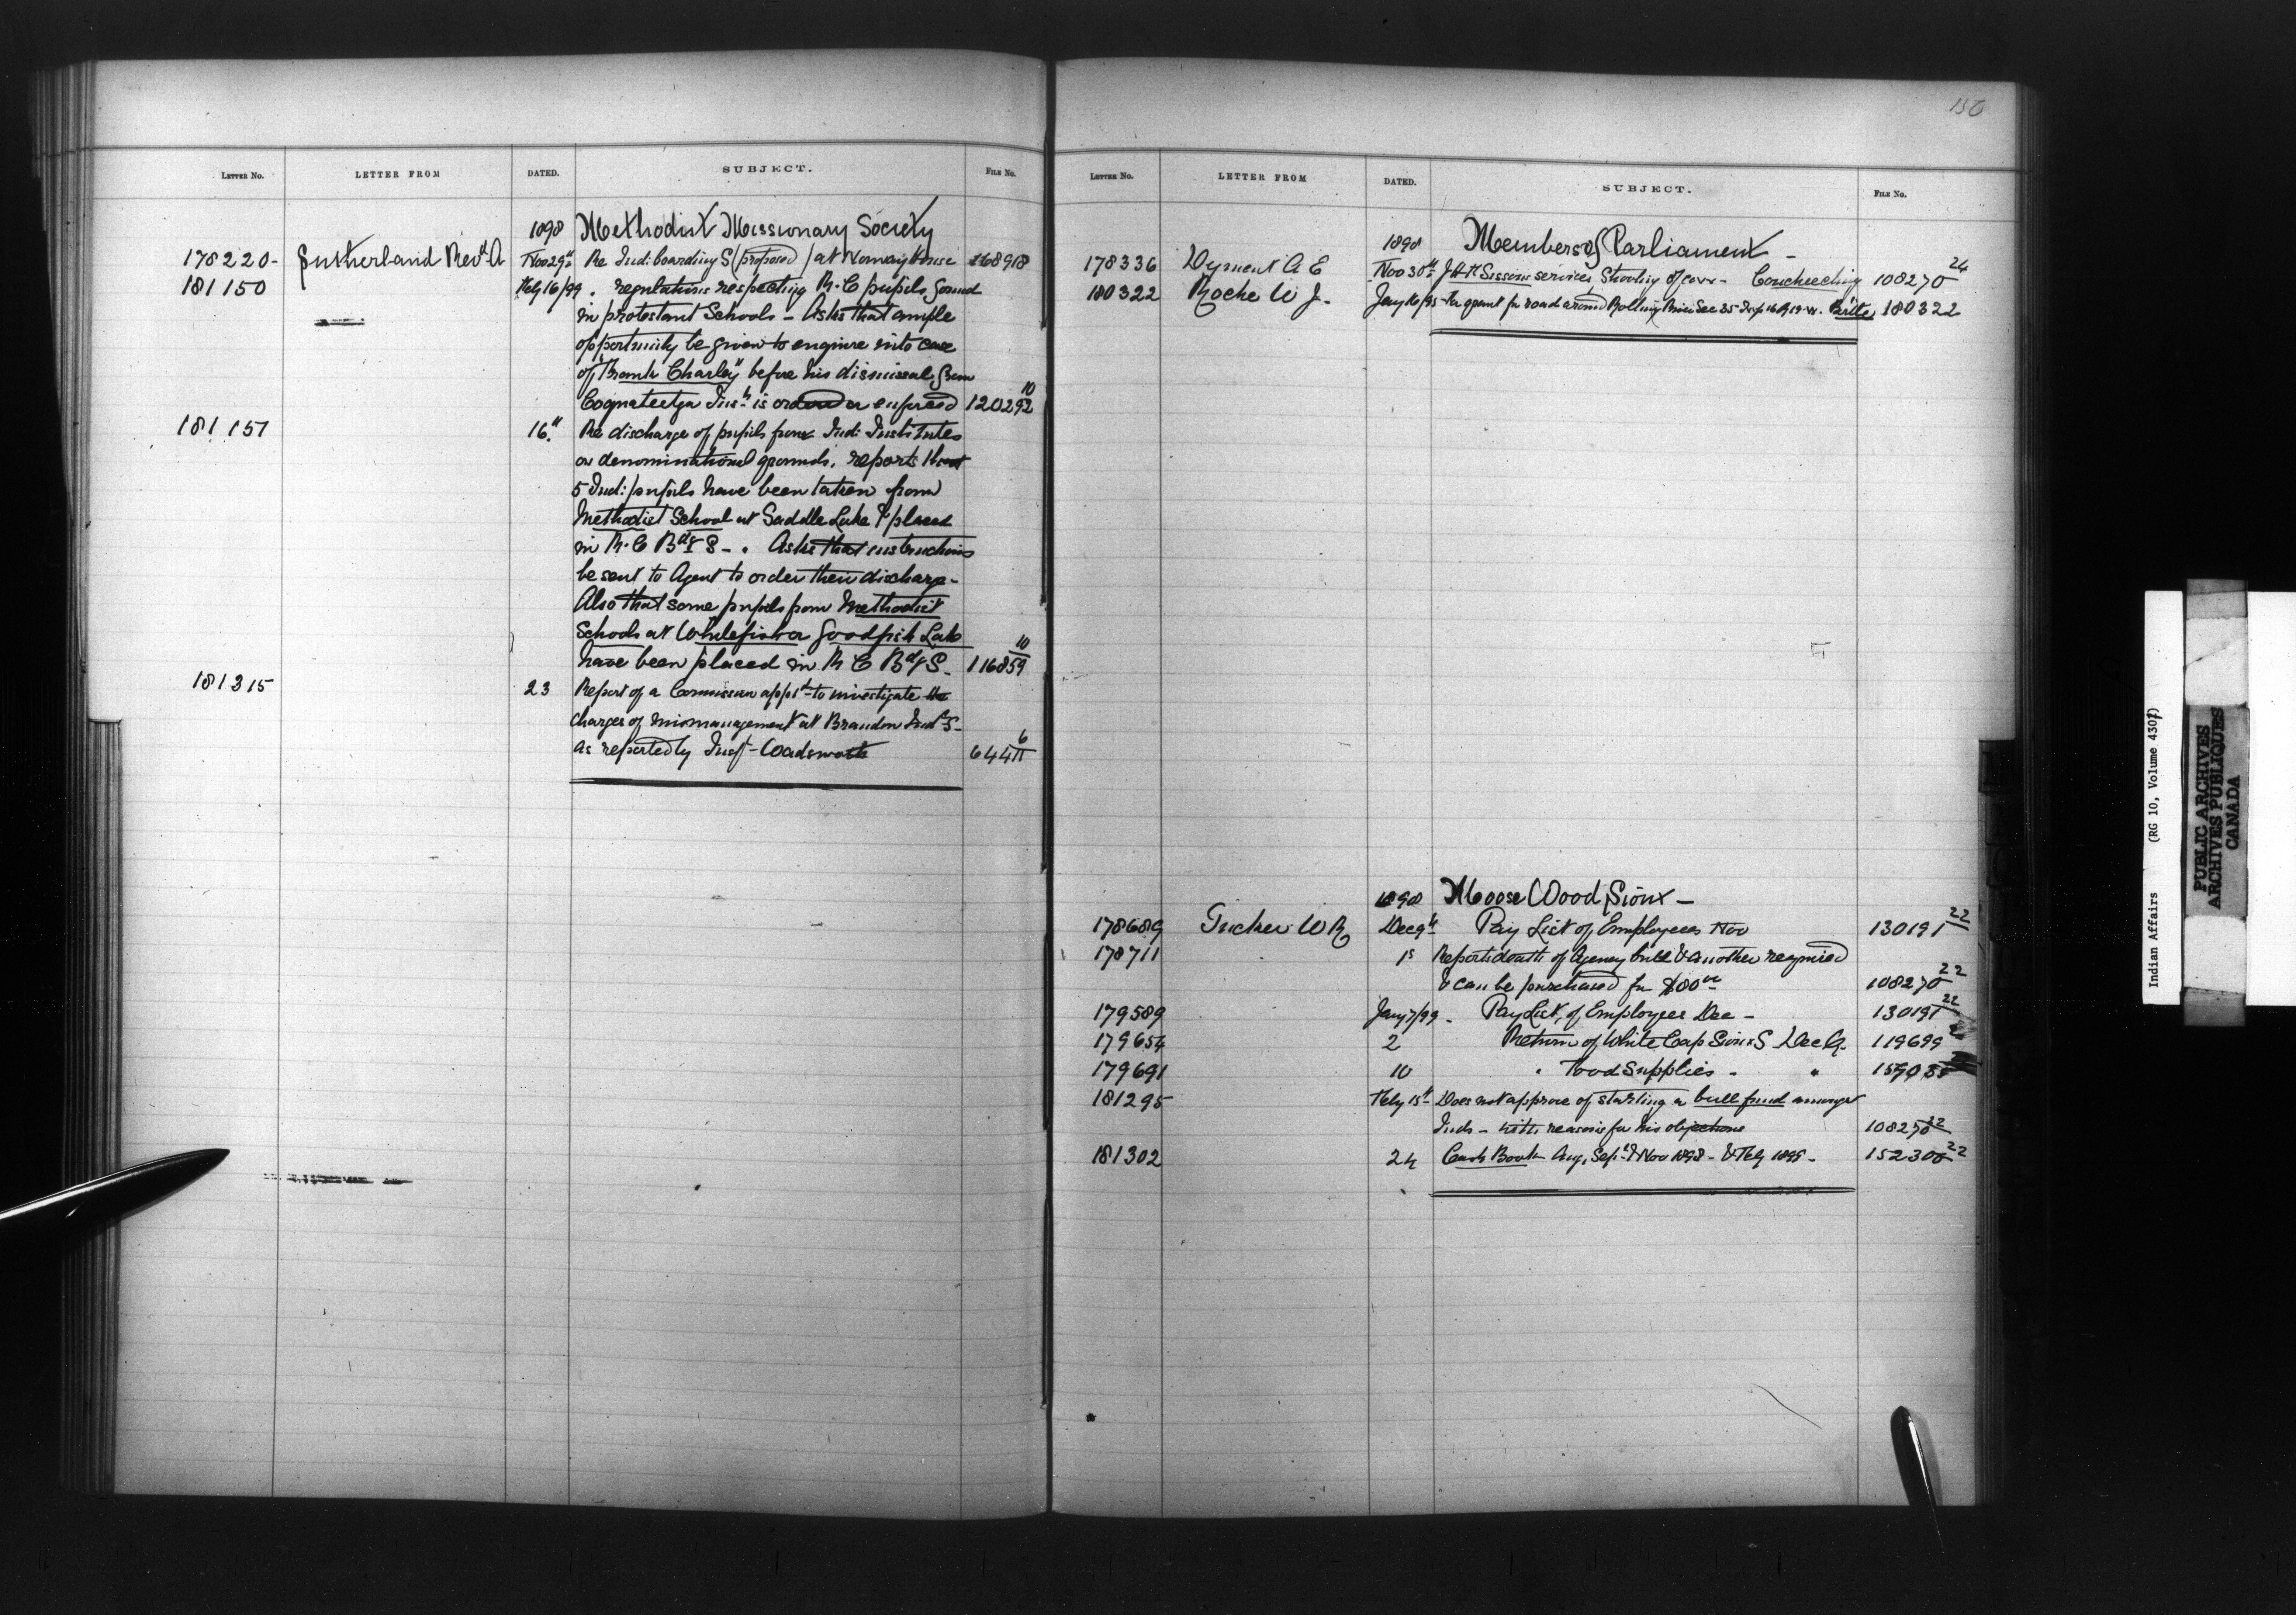 150
LETTER No. LETTER FROM DATED. SUBJECT. FILE No.
1898 Methodist Missionary Society
178220- Sutherland Revd A Nov 29th Re Ind: boarding S (proposed) at Norway House 168918
181150 Feby 16/99 . regulations respecting R.C pupils found
in protestant Schools - Asks that ample
opportunity be given to enquire into case
of "Frank Charley" before his dismissal from
Coqualeetza Inst is ordered or enforced 120292 10
181151 16th Re discharge of pupils from Ind: Institutes
on denominational grounds. reports that
5 Ind: pupils have been taken from
Methodist School at Saddle Lake & placed
in R.C Bdg S - . Asks that instructions
be sent to Agent to order their discharge -
Also that some pupils from Methodist
Schools at Whitefish or Goodfish Lake
have been placed in R C Bdg S - 116859 10
181315 23 Report of a Commission apptd to investigate the
charges of mismanagement at Brandon Indl S -
as reported by Insp - Wadsworth 64411 6
LETTER No. LETTER FROM DATED. SUBJECT. FILE No.
1898 Members of Parliament -
178336 Dyment A E Nov 30th services, Shooting of cow - Couchiching 108270 24
180322 Roche W J. Jany 16/99 - Re grant for road around Rolling River Sec 35 Tnsp 16 R 19 W. Birtle 180322
1898 Moose Wood Sioux -
178689 Tucker W R Dec 9th Pay List of Employees Nov 130191 22
178711 1s Reports death of Agency bull & another required
& can be purchased for $80 oo 108270 22
179589 Jany 7/99 - Pay List, of Employees Dec - 130191 22
179654 2 Return of White Cap Sioux S Dec Q. 119699
179691 10 " Food Supplies - "
181295 Feby 15th Does not approve of starting a bull fund amongst
Inds - with reasons for his objections 108270 22
181302 24 Cash Book Aug, Sept & Nov 1898 - & Feby 1899 - 152300 22
Indian Affairs (RG 10, Volume 4307)
PUBLIC ARCHIVES
ARCHIVES PUBLIQUES
CANADA